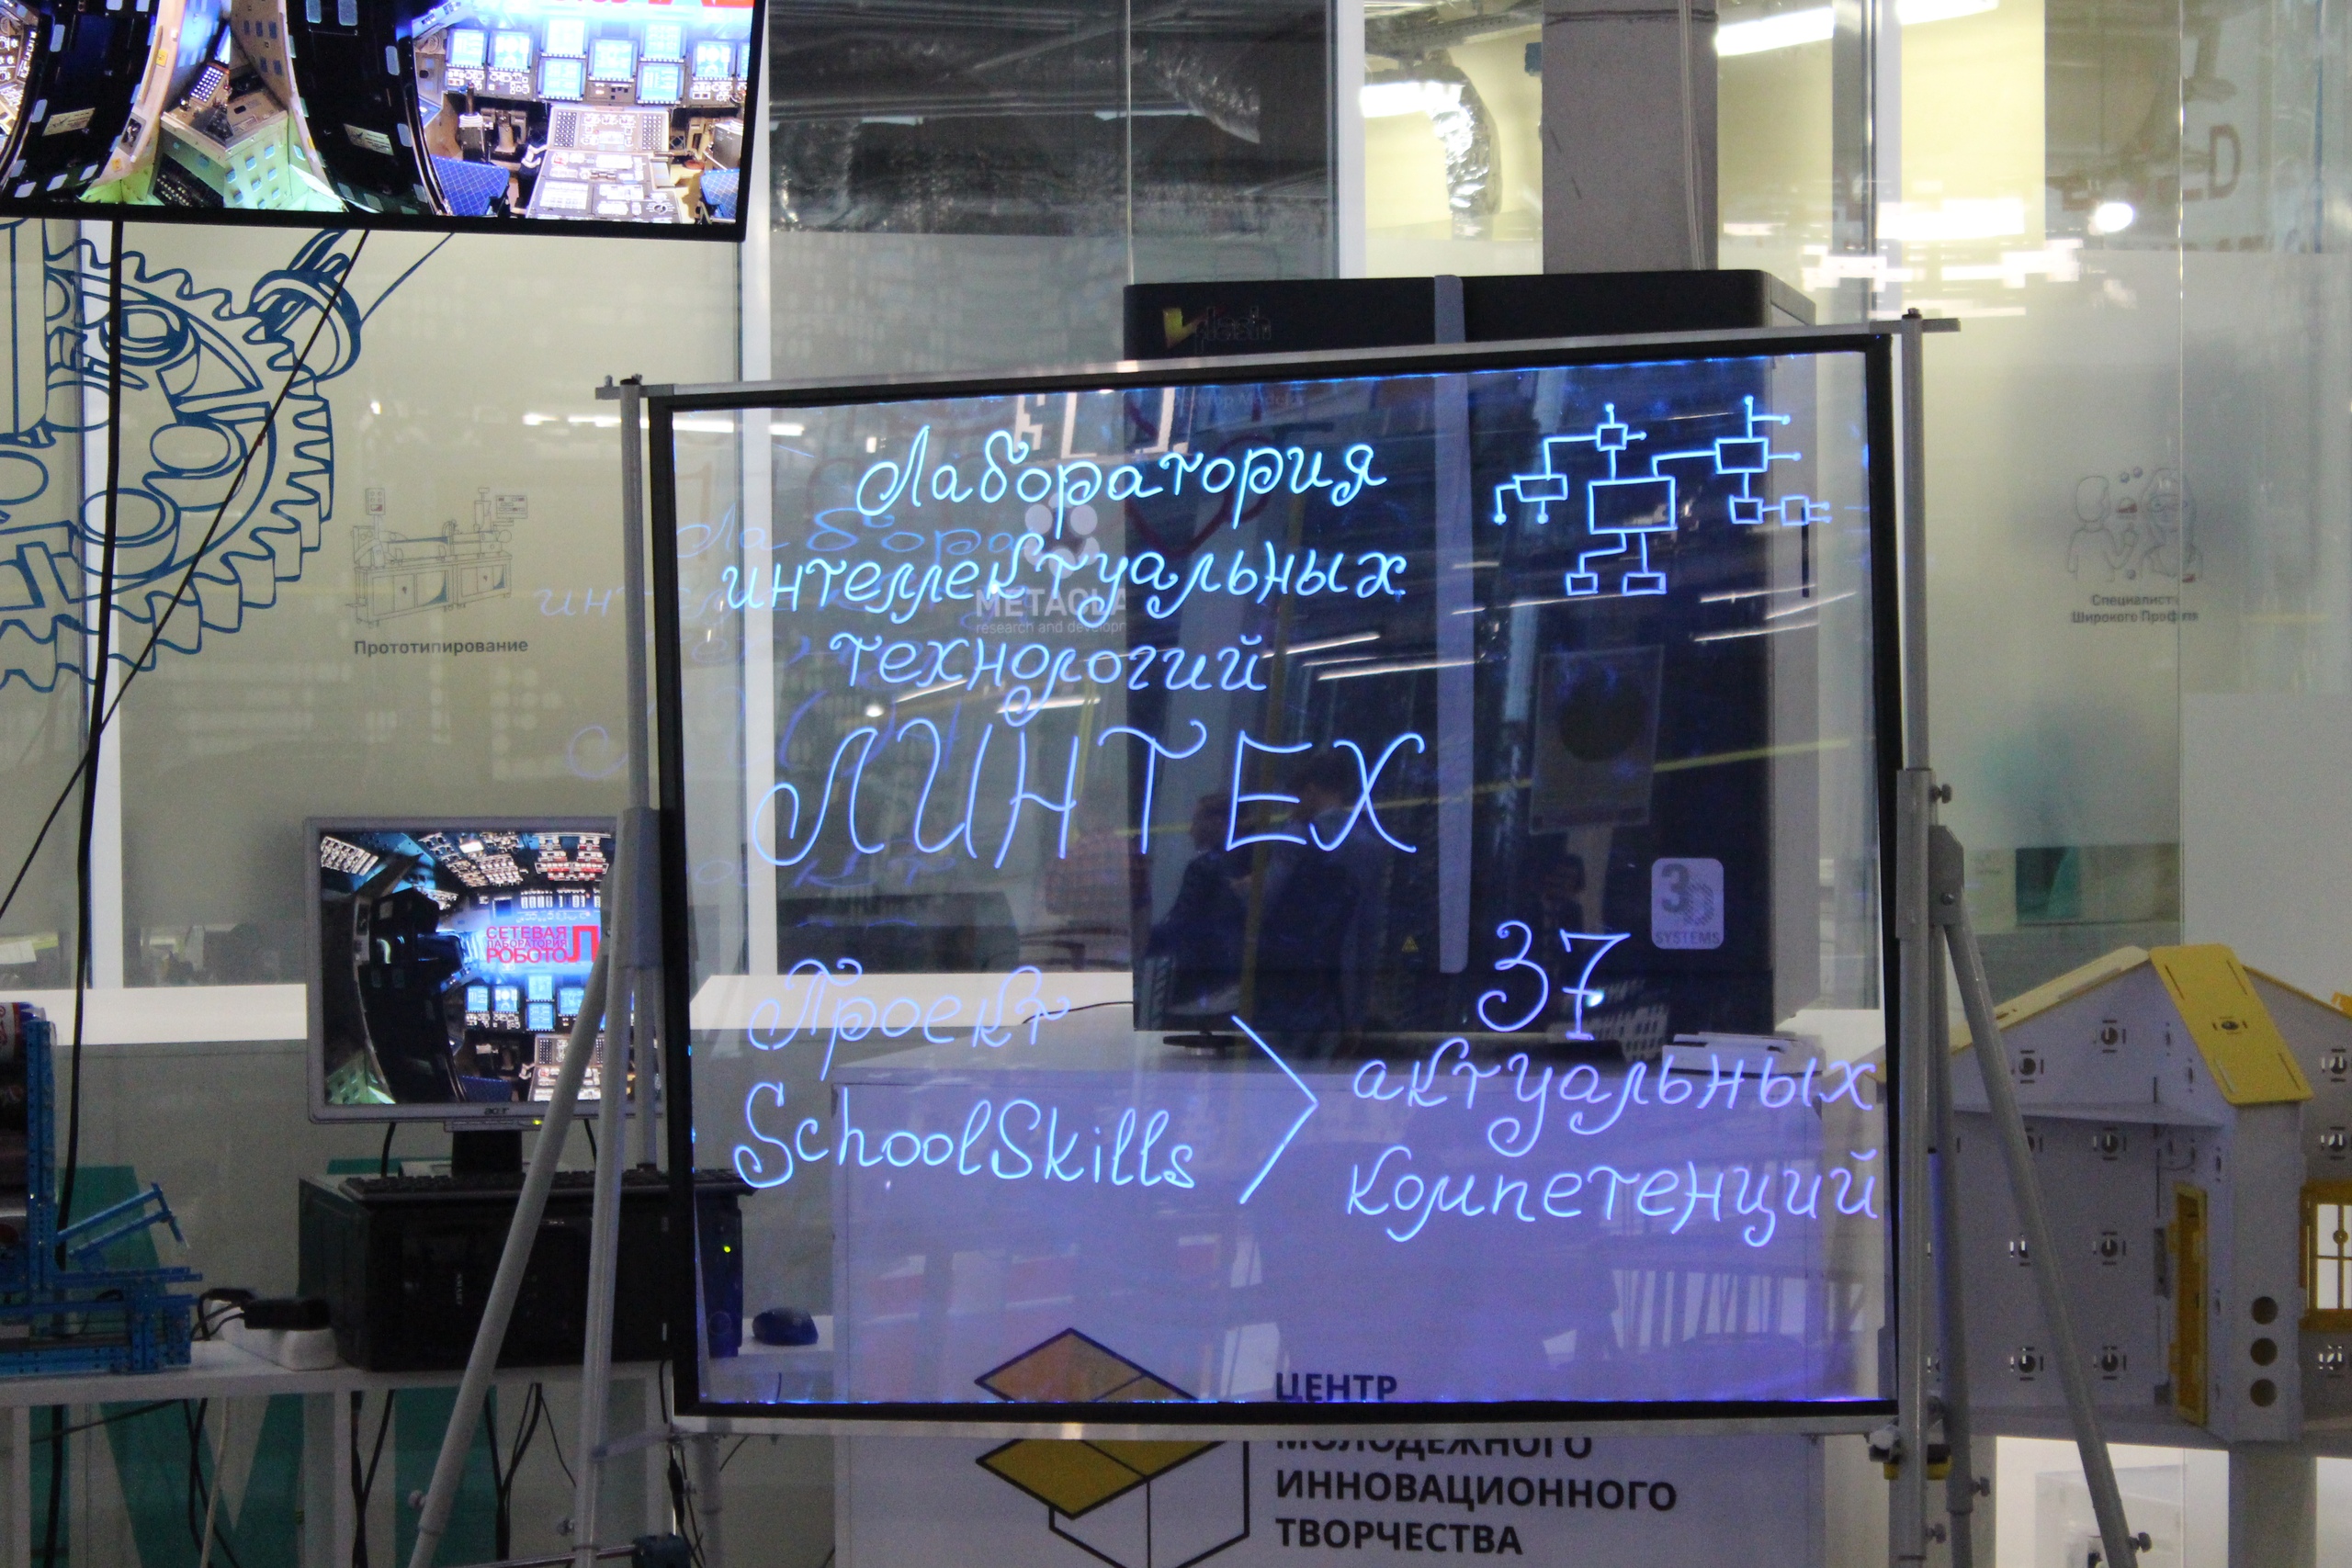 Лаборатория
интеллектуальных
технологий
ЛИНТЕХ
Проект
SchoolSkills
37
актуальных
компетенций
Прототипирование
METAQLA
research and developm
Специалист
Широкого Профиля
3D
SYSTEMS
СЕТЕВАЯ
ЛАБОРАТОРИЯ
РОБОТО
acer
ЦЕНТР
МОЛОДЕЖНОГО
ИННОВАЦИОННОГО
ТВОРЧЕСТВА